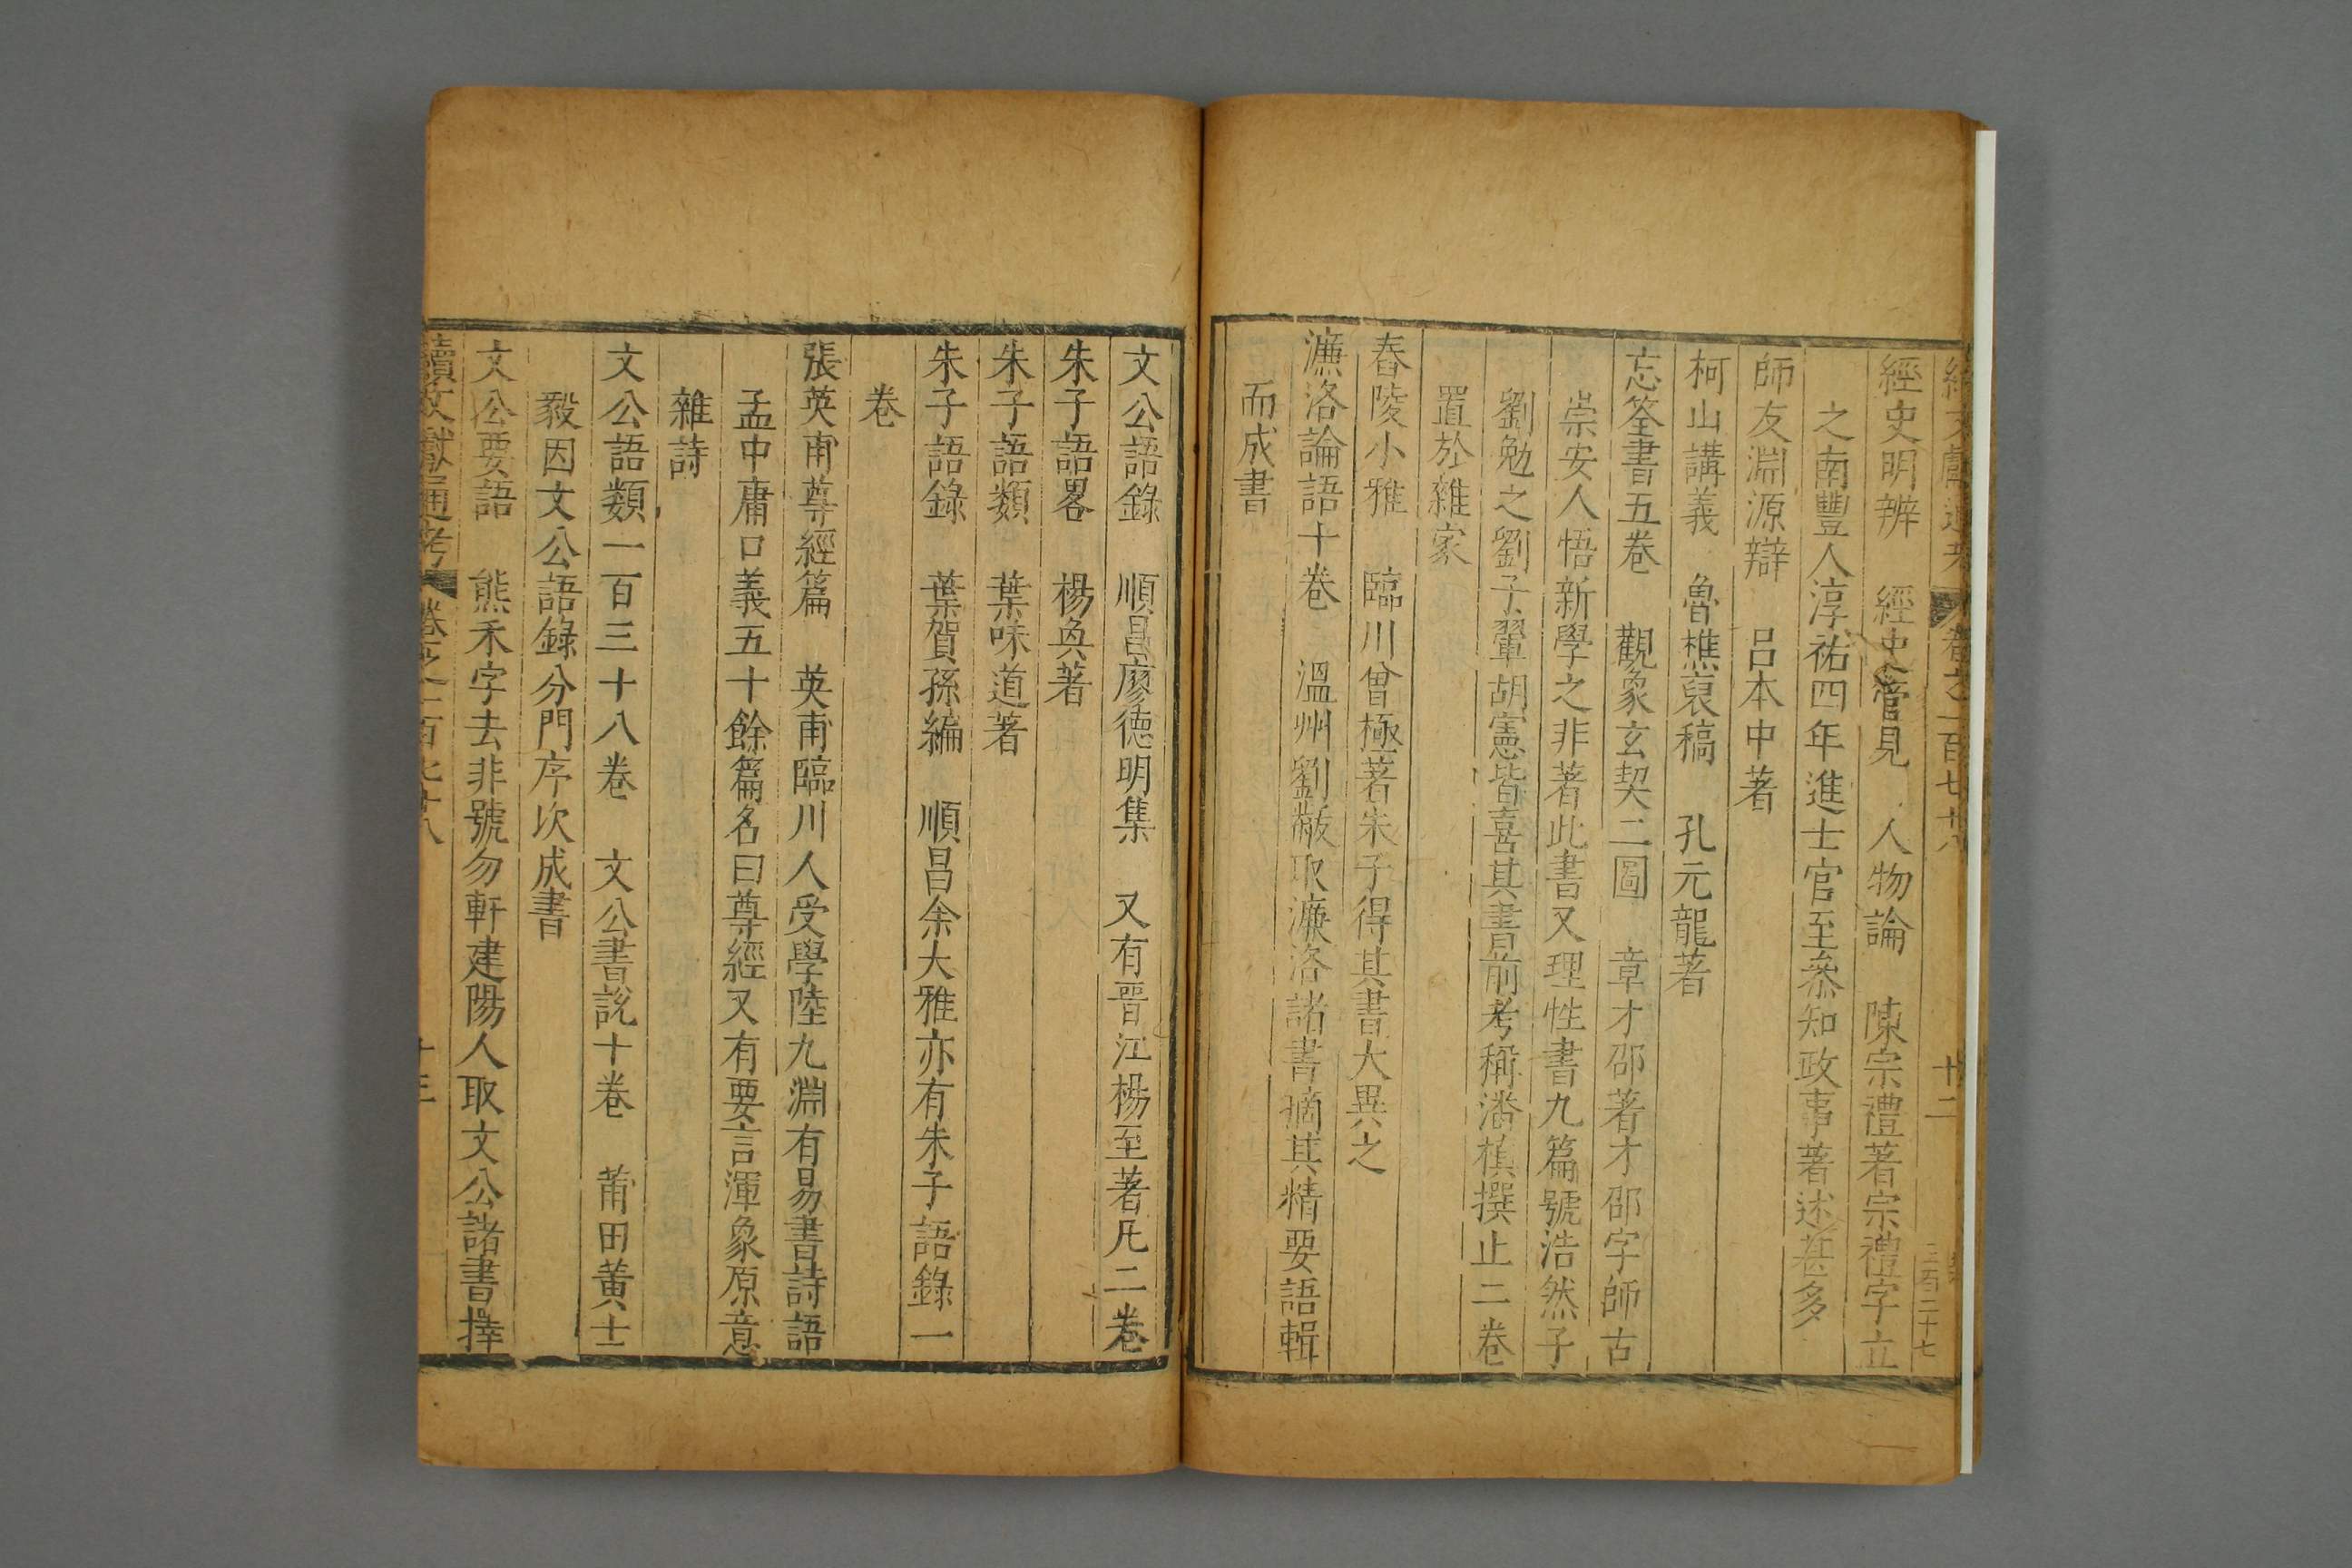 續文獻通考 卷之一百七十八 十二 三百二十七
經史明辨 經史管見 人物論 陳宗禮著宗禮字立
之南豐人淳祐四年進士官至叅知政事著述甚多
師友淵源辯 呂本中著
柯山講義 魯樵裒稿 孔元龍著
忘筌書五卷 觀象玄契二圖 章才邵著才邵字師古
崇安人悟新學之非著此書又理性書九篇號浩然子
劉勉之劉子翬胡憲皆喜其書前考稱潘植撰止二卷
置於雜家
舂陵小雅 臨川曾極著朱子得其書大異之
濂洛論語十卷 溫州劉黻取濂洛諸書摘其精要語輯
而成書
文公語錄 順昌廖德明集 又有晉江楊至著凡二卷
朱子語畧 楊與著
朱子語類 葉味道著
朱子語錄 葉賀孫編 順昌余大雅亦有朱子語錄一
卷
張英甫尊經篇 英甫臨川人受學陸九淵有易書詩語
孟中庸口義五十餘篇名曰尊經又有要言渾象原意
雜詩
文公語類一百三十八卷 文公書說十卷 莆田黃士
毅因文公語錄分門序次成書
文公要語 熊禾字去非號勿軒建陽人取文公諸書擇
續文獻通考 卷之一百七十八 十三